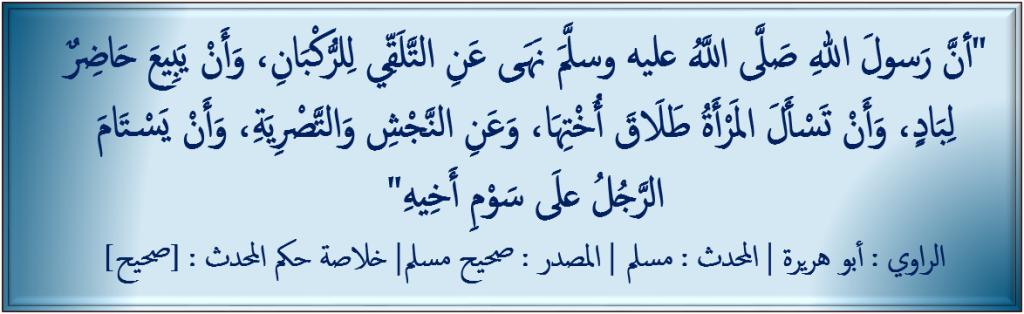 "أنَّ رَسولَ اللهِ صَلَّى اللَّهُ عليه وسلَّمَ نَهَى عَنِ التَّلَقِّي لِلرُّكْبَانِ، وَأَنْ يَبِيعَ حَاضِرٌ
لِبَادٍ، وَأَنْ تَسْأَلَ المَرْأَةُ طَلَاقَ أُخْتِهَا، وَعَنِ النَّجْشِ وَالتَّصْرِيَةِ، وَأَنْ يَسْتَامَ
الرَّجُلُ علَى سَوْمِ أَخِيهِ"
الراوي : أبو هريرة | المحدث : مسلم | المصدر : صحيح مسلم| خلاصة حكم المحدث : [صحيح]